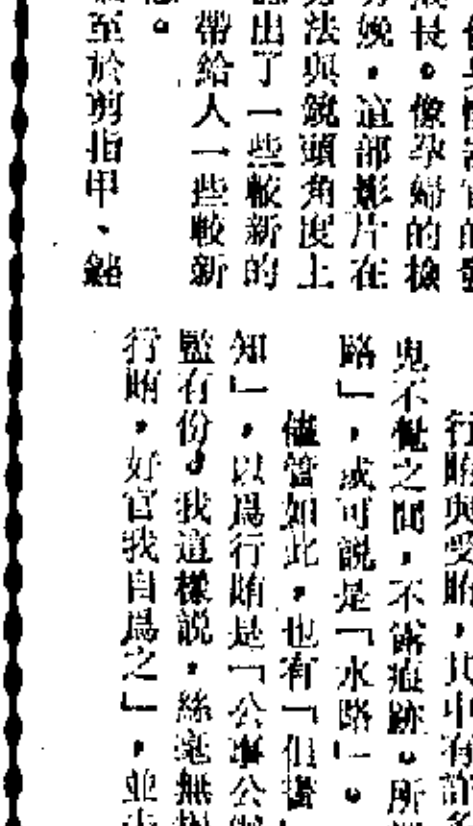 的
長。像孕婦的檢
娩,這部影片在
法與鏡頭角度上
出了一些較新的
帶給人一些較新
。
至於剪指甲、
行賄與受賄,其中有許多
鬼不覺之間,不露痕跡。所
路」,或可說是「水路」。
儘管如此,也有「但書
知」,以爲行賄是「公事公
監有份。我這樣說,絲毫無
行賄,好官我自爲之」,並